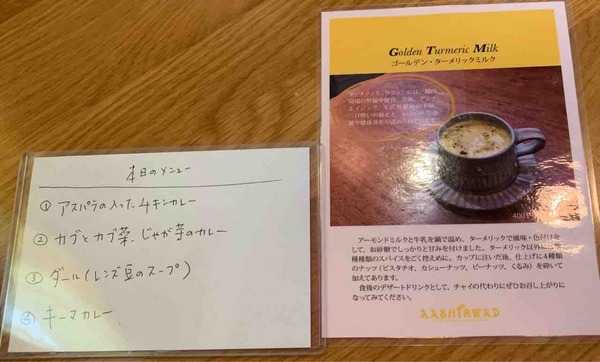 本日のメニュー
① アスパラの入ったチキンカレー
② カブとカブ菜、じゃが芋のカレー
③ ダール(レンズ豆のスープ)
④ キーマカレー
Golden Turmeric Milk
ゴールデン・ターメリックミルク
アーモンドミルクと牛乳を鍋で温め、ターメリックで風味・色付けを
して、お砂糖でしっかりと甘みを付けました。ターメリック以外に
種類のスパイスをごく控えめに。カップに注いだ後、仕上げに4種類
のナッツ(ピスタチオ、カシューナッツ、ピーナッツ、くるみ)を砕いて
加えてあります。
食後のデザートドリンクとして、チャイの代わりにぜひお召し上がりに
なってみてください。
AASHIRWAD